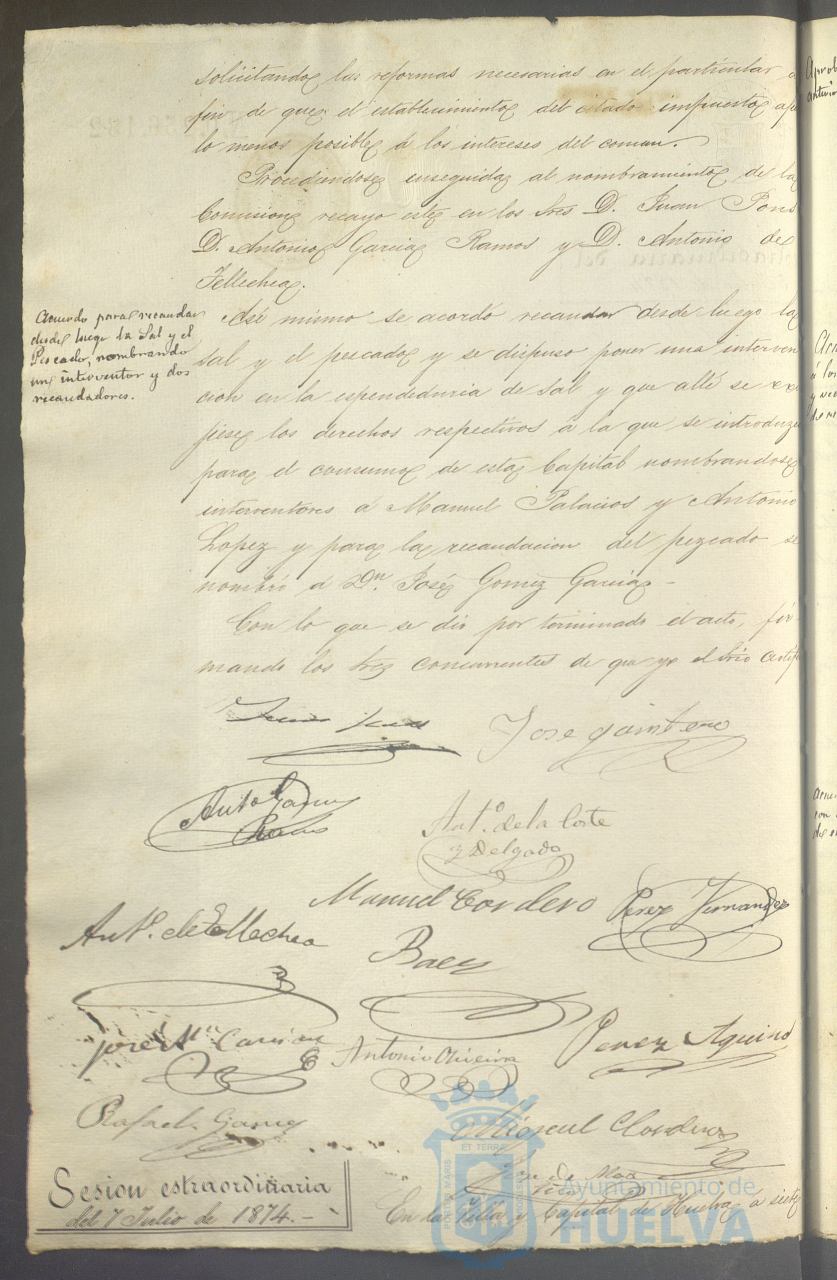 solicitando las reformas necesarias en el particular a
fin de que el establecimiento del citado impuesto afe
lo menos posible á los intereses del comun.
Procediendose enseguida al nombramiento de la
Comision recayo este en los Sres D. Juan Pons
D. Antonio Garcia Ramos y D. Antonio de
Tellechea.
Acuerdo para recaudar
desde luego la Sal y el
Pescado, nombrando
un interventor y dos
recaudadores.
Asi mismo se acordó recaudar desde luego la
sal y el pescado y se dispuso poner una interven
cion en la espendeduria de sal y que allí se exi
jiese los derechos respectivos á la que se introduzca
para el consumo de esta Capital nombrandose
interventores á Manuel Palacios y Antonio
Lopez y para la recaudacion del pezcado se
nombró á Dn. José Gomez Garcia -
Con lo que se dio por terminado el acto, fir-
mando los Sres concurrentes de que yo el Srio certifi
Jose Quintero
Anto Garcia
Ramos
Ant.º de la Corte
y Delgado
Manuel Cordero
Perez Fernandez
Ant.º de Tellechea
Baez
José Mª
Antonio Oliveira
Perez Aquino
Rafael Garcia
Miguel Cordero
Sesion estraordinaria
del 7 Julio de 1874.-
En la Villa y Capital de Huelva á siete
ET TERRAE
Ayuntamiento de
HUELVA